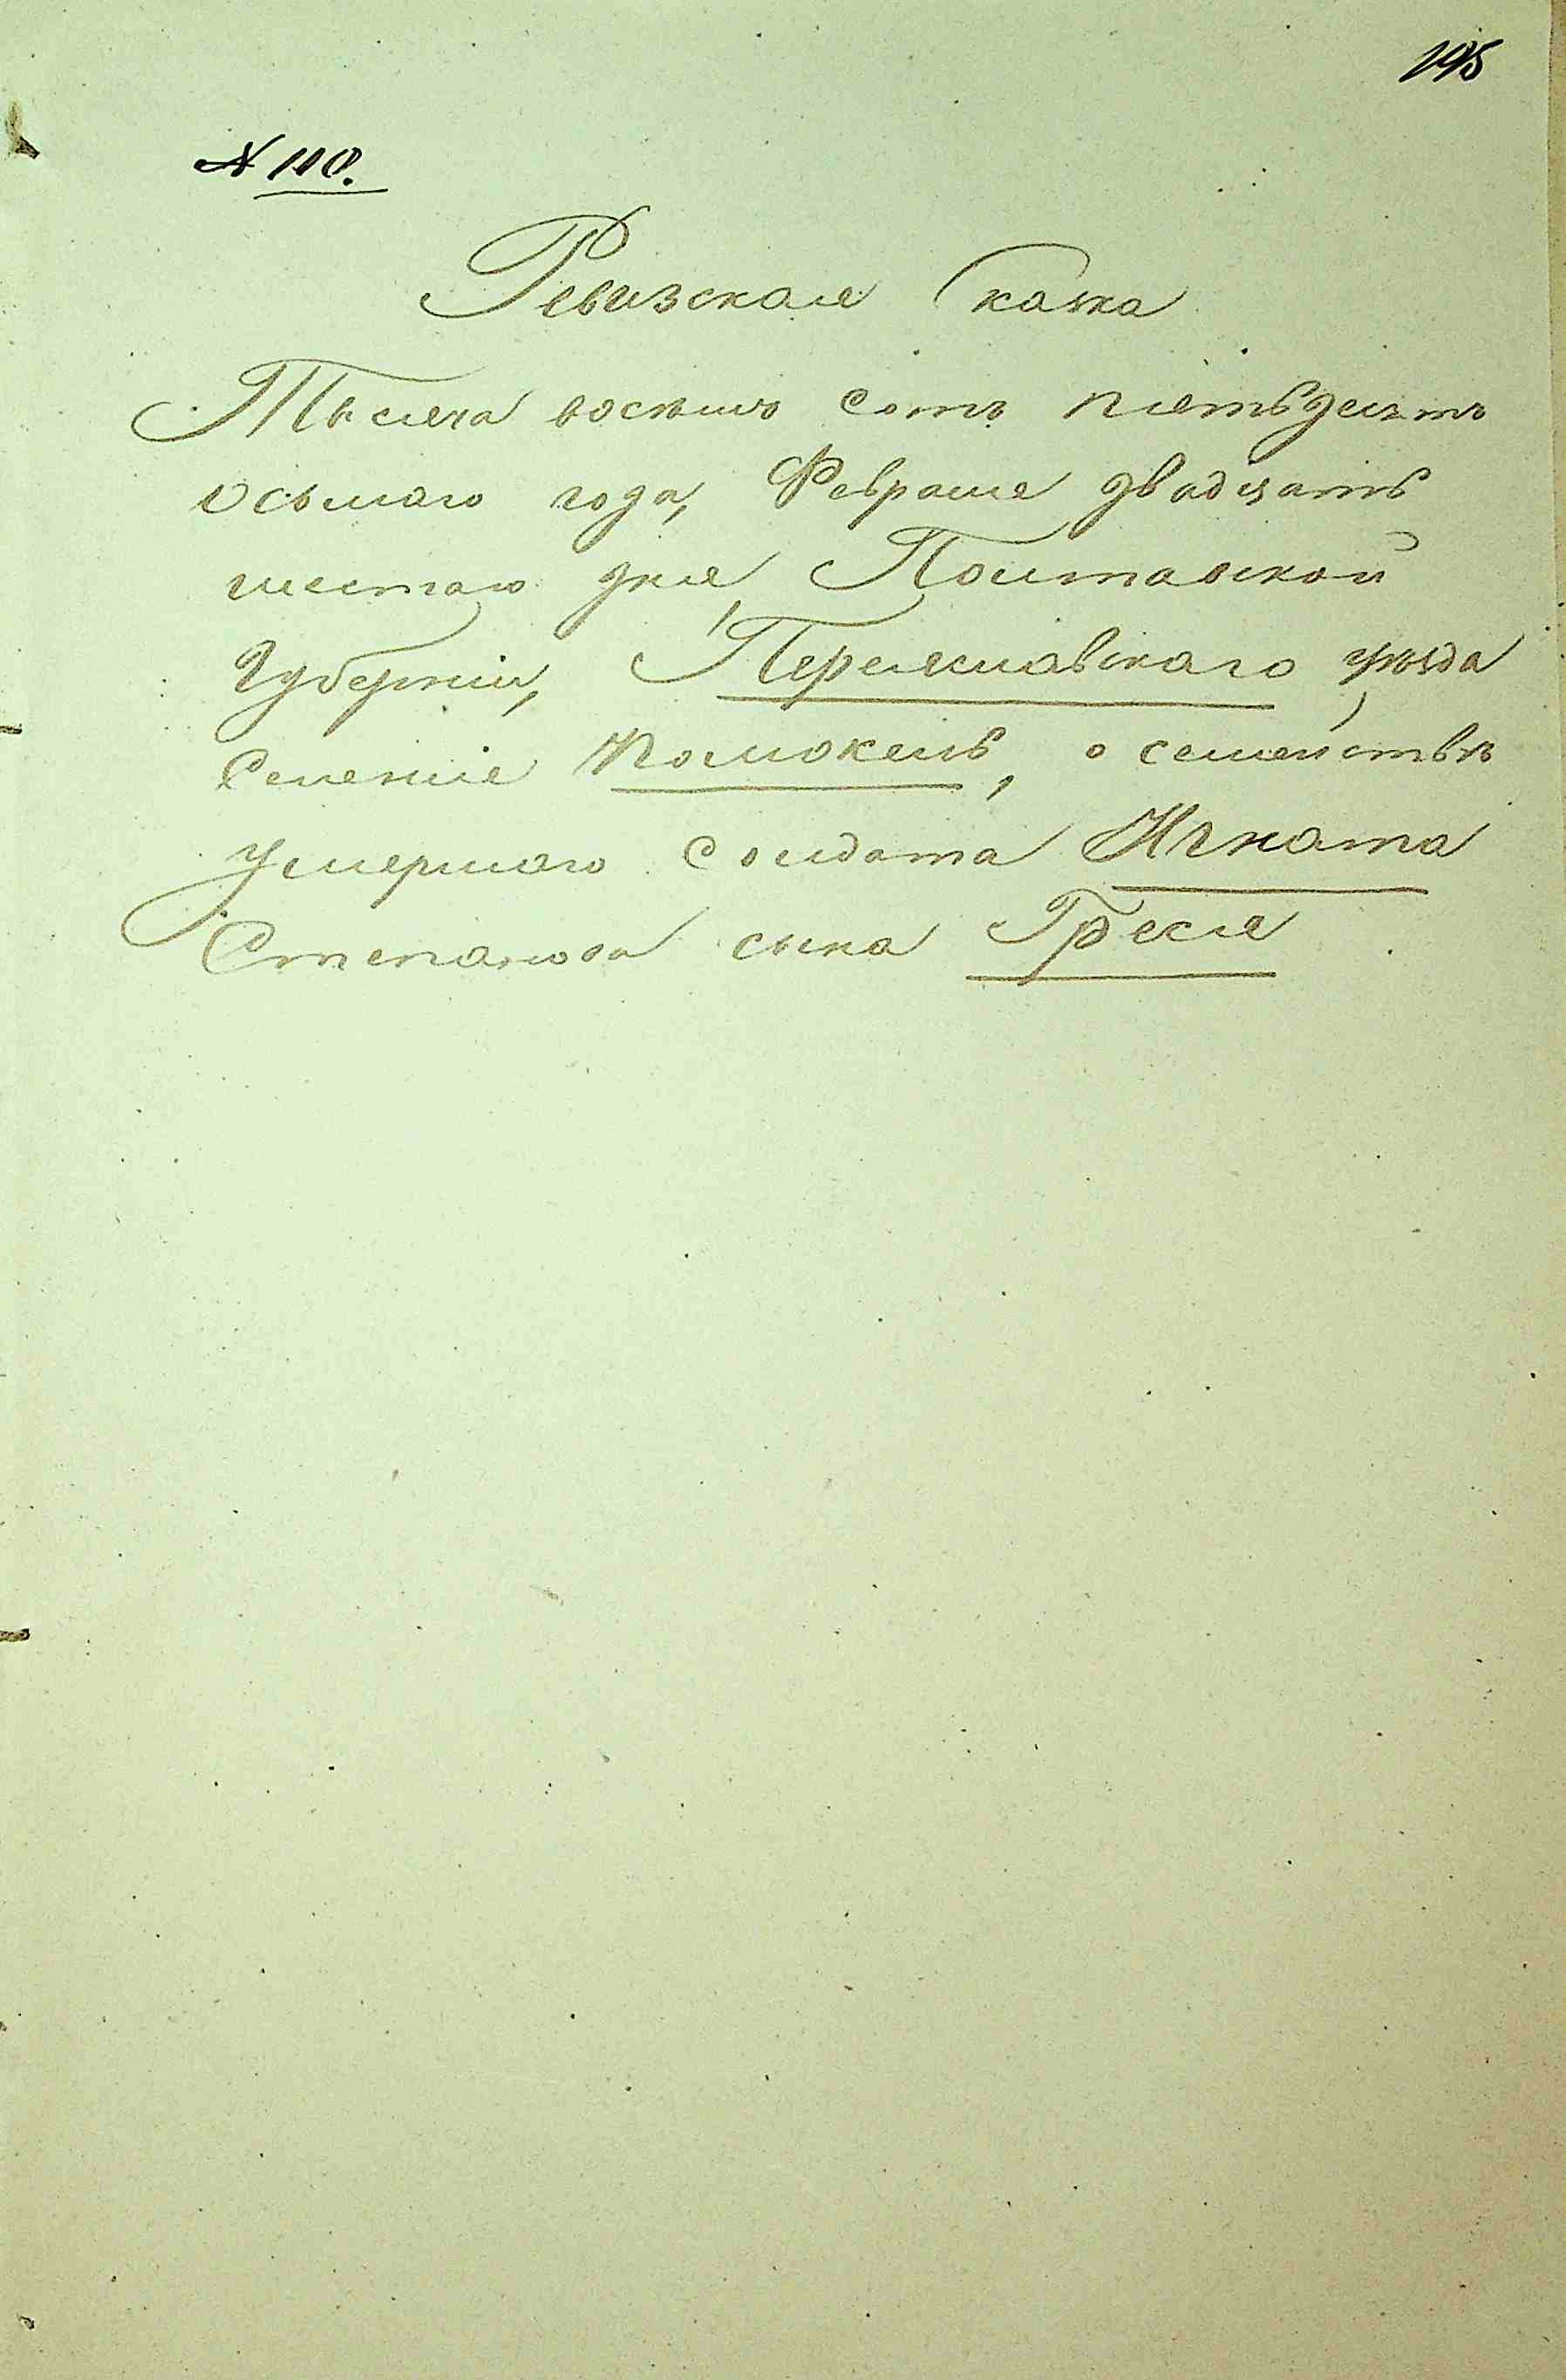 195
№ 110.
Ревизская Сказка
Тысяча восемь сотъ пятьдесятъ
осьмаго года, Февраля двадцать
шестаго дня Полтавской
Губерніи, Переяславскаго уѣзда
Селеніе Помокель, о семействѣ
умершаго Солдата Игната
Степанова сына Гресля